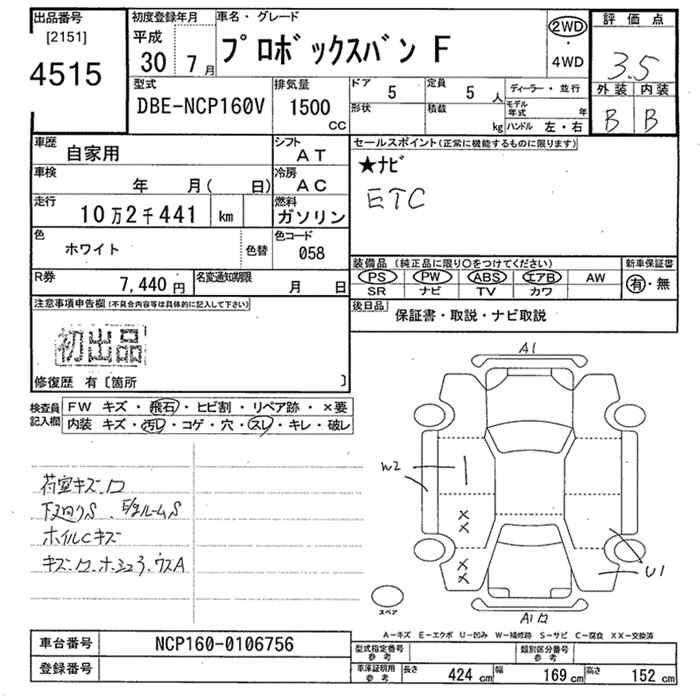 出品番号
[2151]
4515
初度登録年月
平成
30 7月
車名・グレード
プロボックスバン F
2WD
・
4WD
評価点
3.5
外装 内装
B B
型式
DBE-NCP160V
排気量
1500
CC
ドア 5
定員 5 人
形状
積載 kg
ディーラー・並行
モデル年式 年
ハンドル 左・右
車歴 自家用
シフト AT
車検 年 月( 日)
冷房 AC
走行 10万2千441 km
燃料 ガソリン
色 ホワイト 色替
色コード 058
R券 7,440円
名変通知期限 月 日
セールスポイント(正常に機能するものに限ります)
★ナビ
ETC
装備品(純正品に限り○をつけてください)
新車保証書
PS PW ABS エアB AW
SR ナビ TV カワ
有・無
後日品
保証書・取説・ナビ取説
注意事項申告欄(不具合内容等は具体的に記入して下さい)
初出品
修復歴 有〔箇所 〕
検査員記入欄
FW キズ・飛石・ヒビ割・リペア跡・×要
内装 キズ・汚レ・コゲ・穴・スレ・キレ・破レ
荷室キズ、ワ
下廻りS
ルームS
ホイルCキズ
A1
W2
U1
A1ワ
スペア
A-キズ E-エクボ U-凹み W-補修跡 S-サビ C-腐食 XX-交換済
車台番号 NCP160-0106756
登録番号
型式指定番号 参考
類別区分番号 参考
車庫証明用 参考
長さ 424 cm 幅 169 cm 高さ 152 cm